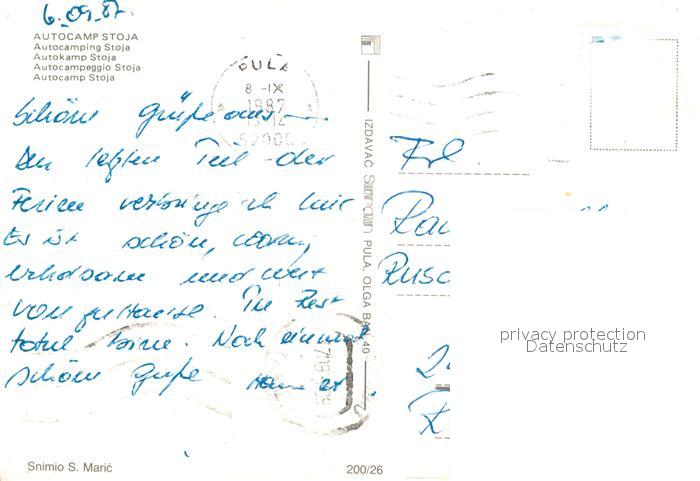 6.09.87.
AUTOCAMP STOJA
Autocamping Stoja
Autokamp Stoja
Autocampeggio Stoja
Autocamp Stoja
PULA
8 -IX
1987
52000
Schöne Grüße aus
Den letzten Teil der
Ferien verbring ich hier
Es ist schön, warm,
erholsam und weit
von zuhause. Im Rest
total bine. Noch einmal
schöne Grüße
IZDAVAČ PULA, OLGA BAN 40
Frl.
privacy protection
Datenschutz
Snimio S. Marić
200/26